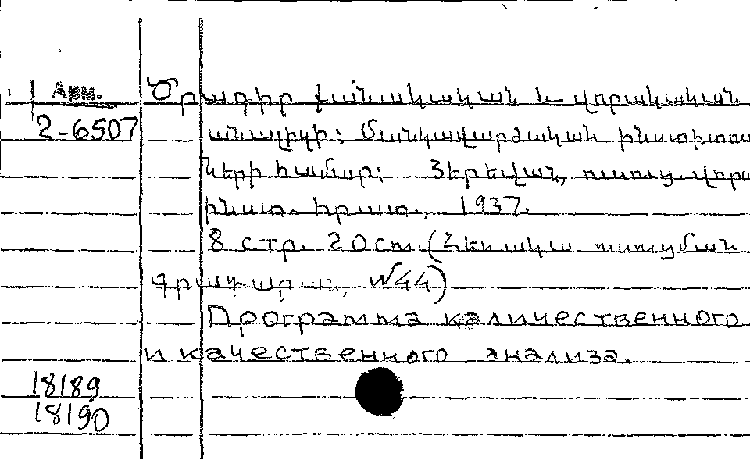 Арм. Ծրագիր քանակական և վորակական
2-6507 անալիզի: Մանկավարժական ինստիտուտ
ների համար: Յերեվան, ուսուց. վերա
ինստ. հրատ., 1937.
8 стр. 20 см. (Հեռակա ուսուցման
գրադարան, №44)
Программа каличественного
и качественного анализа.
18189
18190